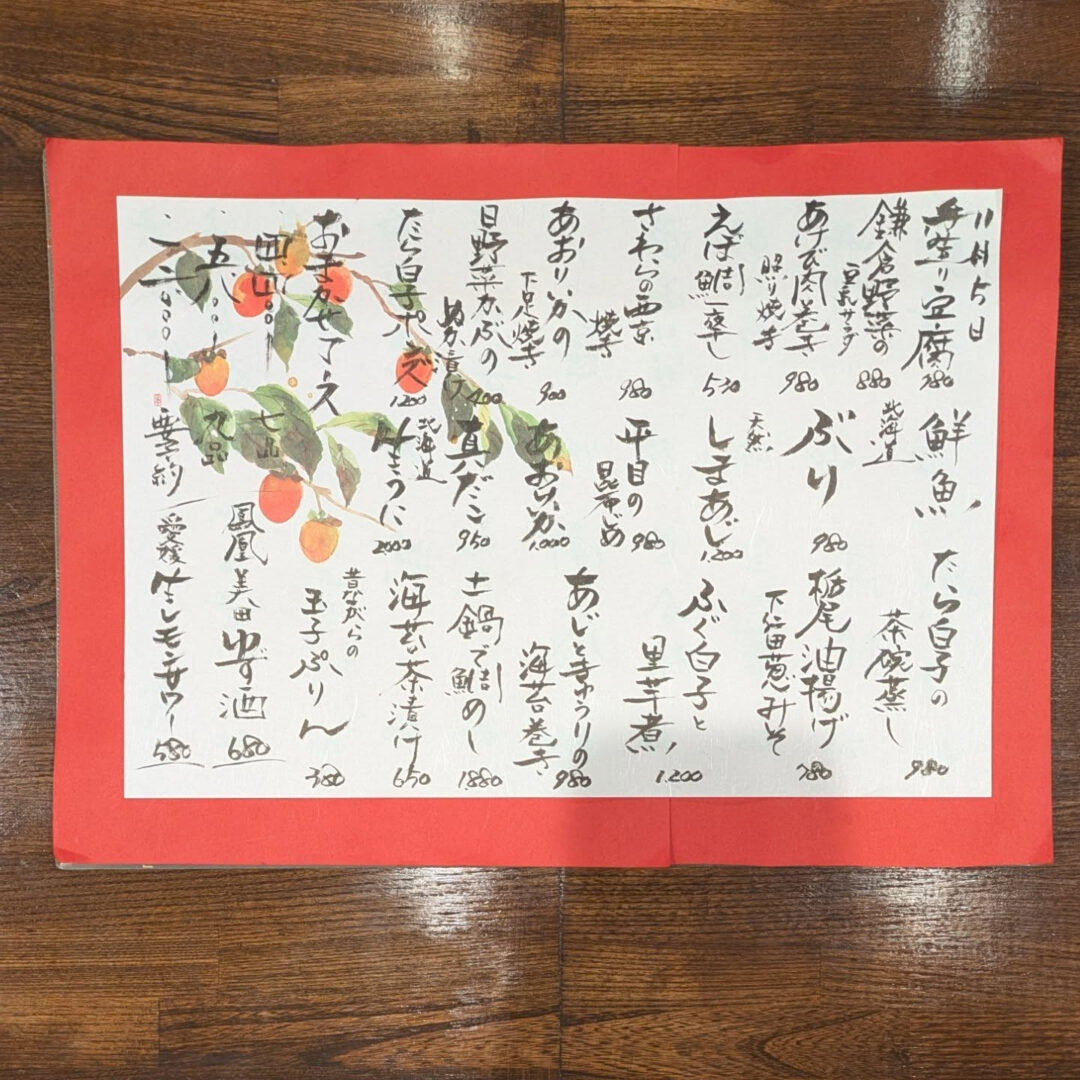 11月5日
手造り豆腐 780
鎌倉野菜の
豆乳サラダ 880
あけび肉巻き
照り焼き 980
えぼ鯛一夜干し 530
さわらの西京
焼き 980
あおりいかの
下足焼き 900
日野菜かぶの
ぬか漬け 400
たら白子ポン酢 1200
おまかせコース
鮮魚
北海道
ぶり 980
天然
しまあじ 1,200
平目の
昆布〆 980
あおりいか 1,000
真だこ 950
北海道
生うに 2000
たら白子の
茶碗蒸し 980
栃尾油揚げ
下仁田葱みそ 780
ふぐ白子と
里芋煮 1,200
あじときゅうりの
海苔巻き 980
土鍋で鯛めし 1,880
海苔茶漬け 650
昔ながらの
玉子ぷりん 380
鳳凰美田 ゆず酒 680
愛媛 生レモンサワー 580
七品
九品
要予約